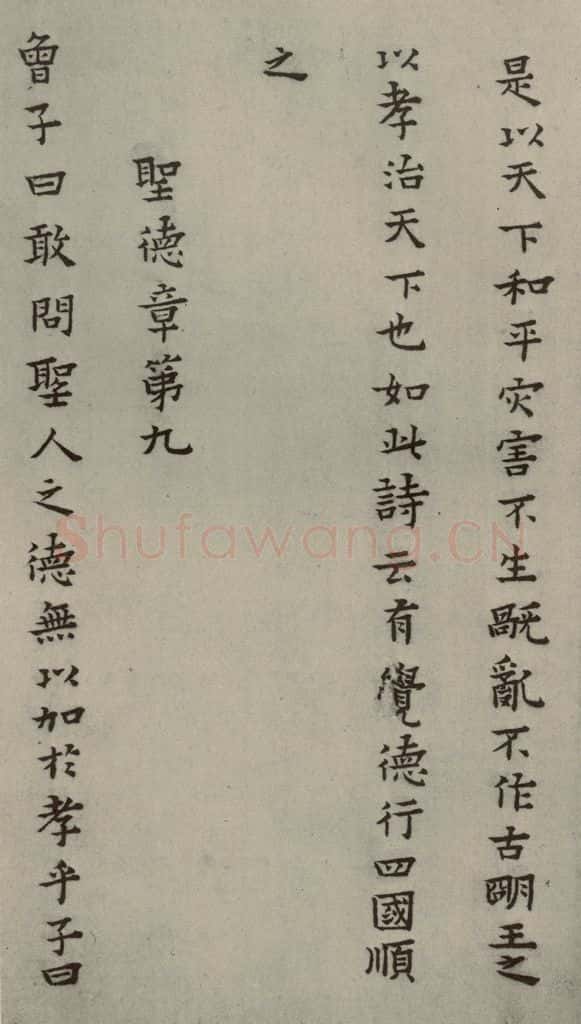 是以天下和平灾害不生旤亂不作古明王之
以孝治天下也如此詩云有覺德行四國順
之
聖德章第九
曾子曰敢問聖人之德無以加於孝乎子曰
Shufawang.CN